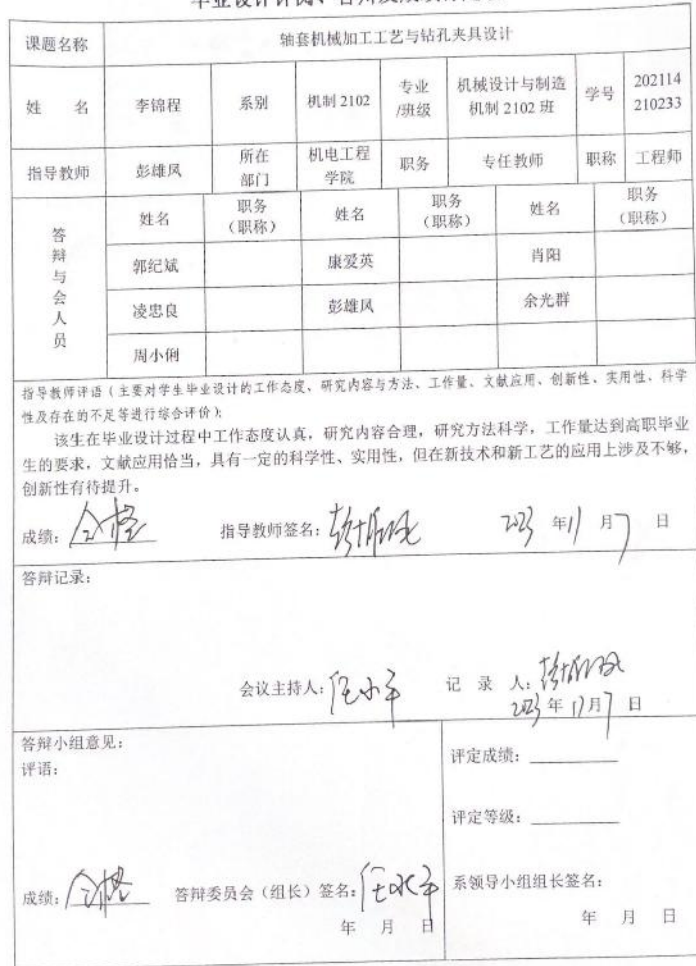 课题名称 轴套机械加工工艺与钻孔夹具设计
姓 名 李锦程 系别 机制 2102 专业/班级 机械设计与制造 机制 2102 班 学号 202114210233
指导教师 彭雄凤 所在部门 机电工程学院 职务 专任教师 职称 工程师
答辩与会人员
姓名 职务(职称) 姓名 职务(职称) 姓名 职务(职称)
郭纪斌 康爱英 肖阳
凌忠良 彭雄凤 余光群
周小俐
指导教师评语(主要对学生毕业设计的工作态度、研究内容与方法、工作量、文献应用、创新性、实用性、科学
性及存在的不足等进行综合评价):
该生在毕业设计过程中工作态度认真,研究内容合理,研究方法科学,工作量达到高职毕业
生的要求,文献应用恰当,具有一定的科学性、实用性,但在新技术和新工艺的应用上涉及不够,
创新性有待提升。
成绩:合格 指导教师签名:彭雄凤 2023 年 11 月 7 日
答辩记录:
会议主持人: 记 录 人:彭雄凤
2023 年 11 月 7 日
答辩小组意见:
评语:
成绩:合格 答辩委员会(组长)签名:
年 月 日
评定成绩:
评定等级:
系领导小组组长签名:
年 月 日